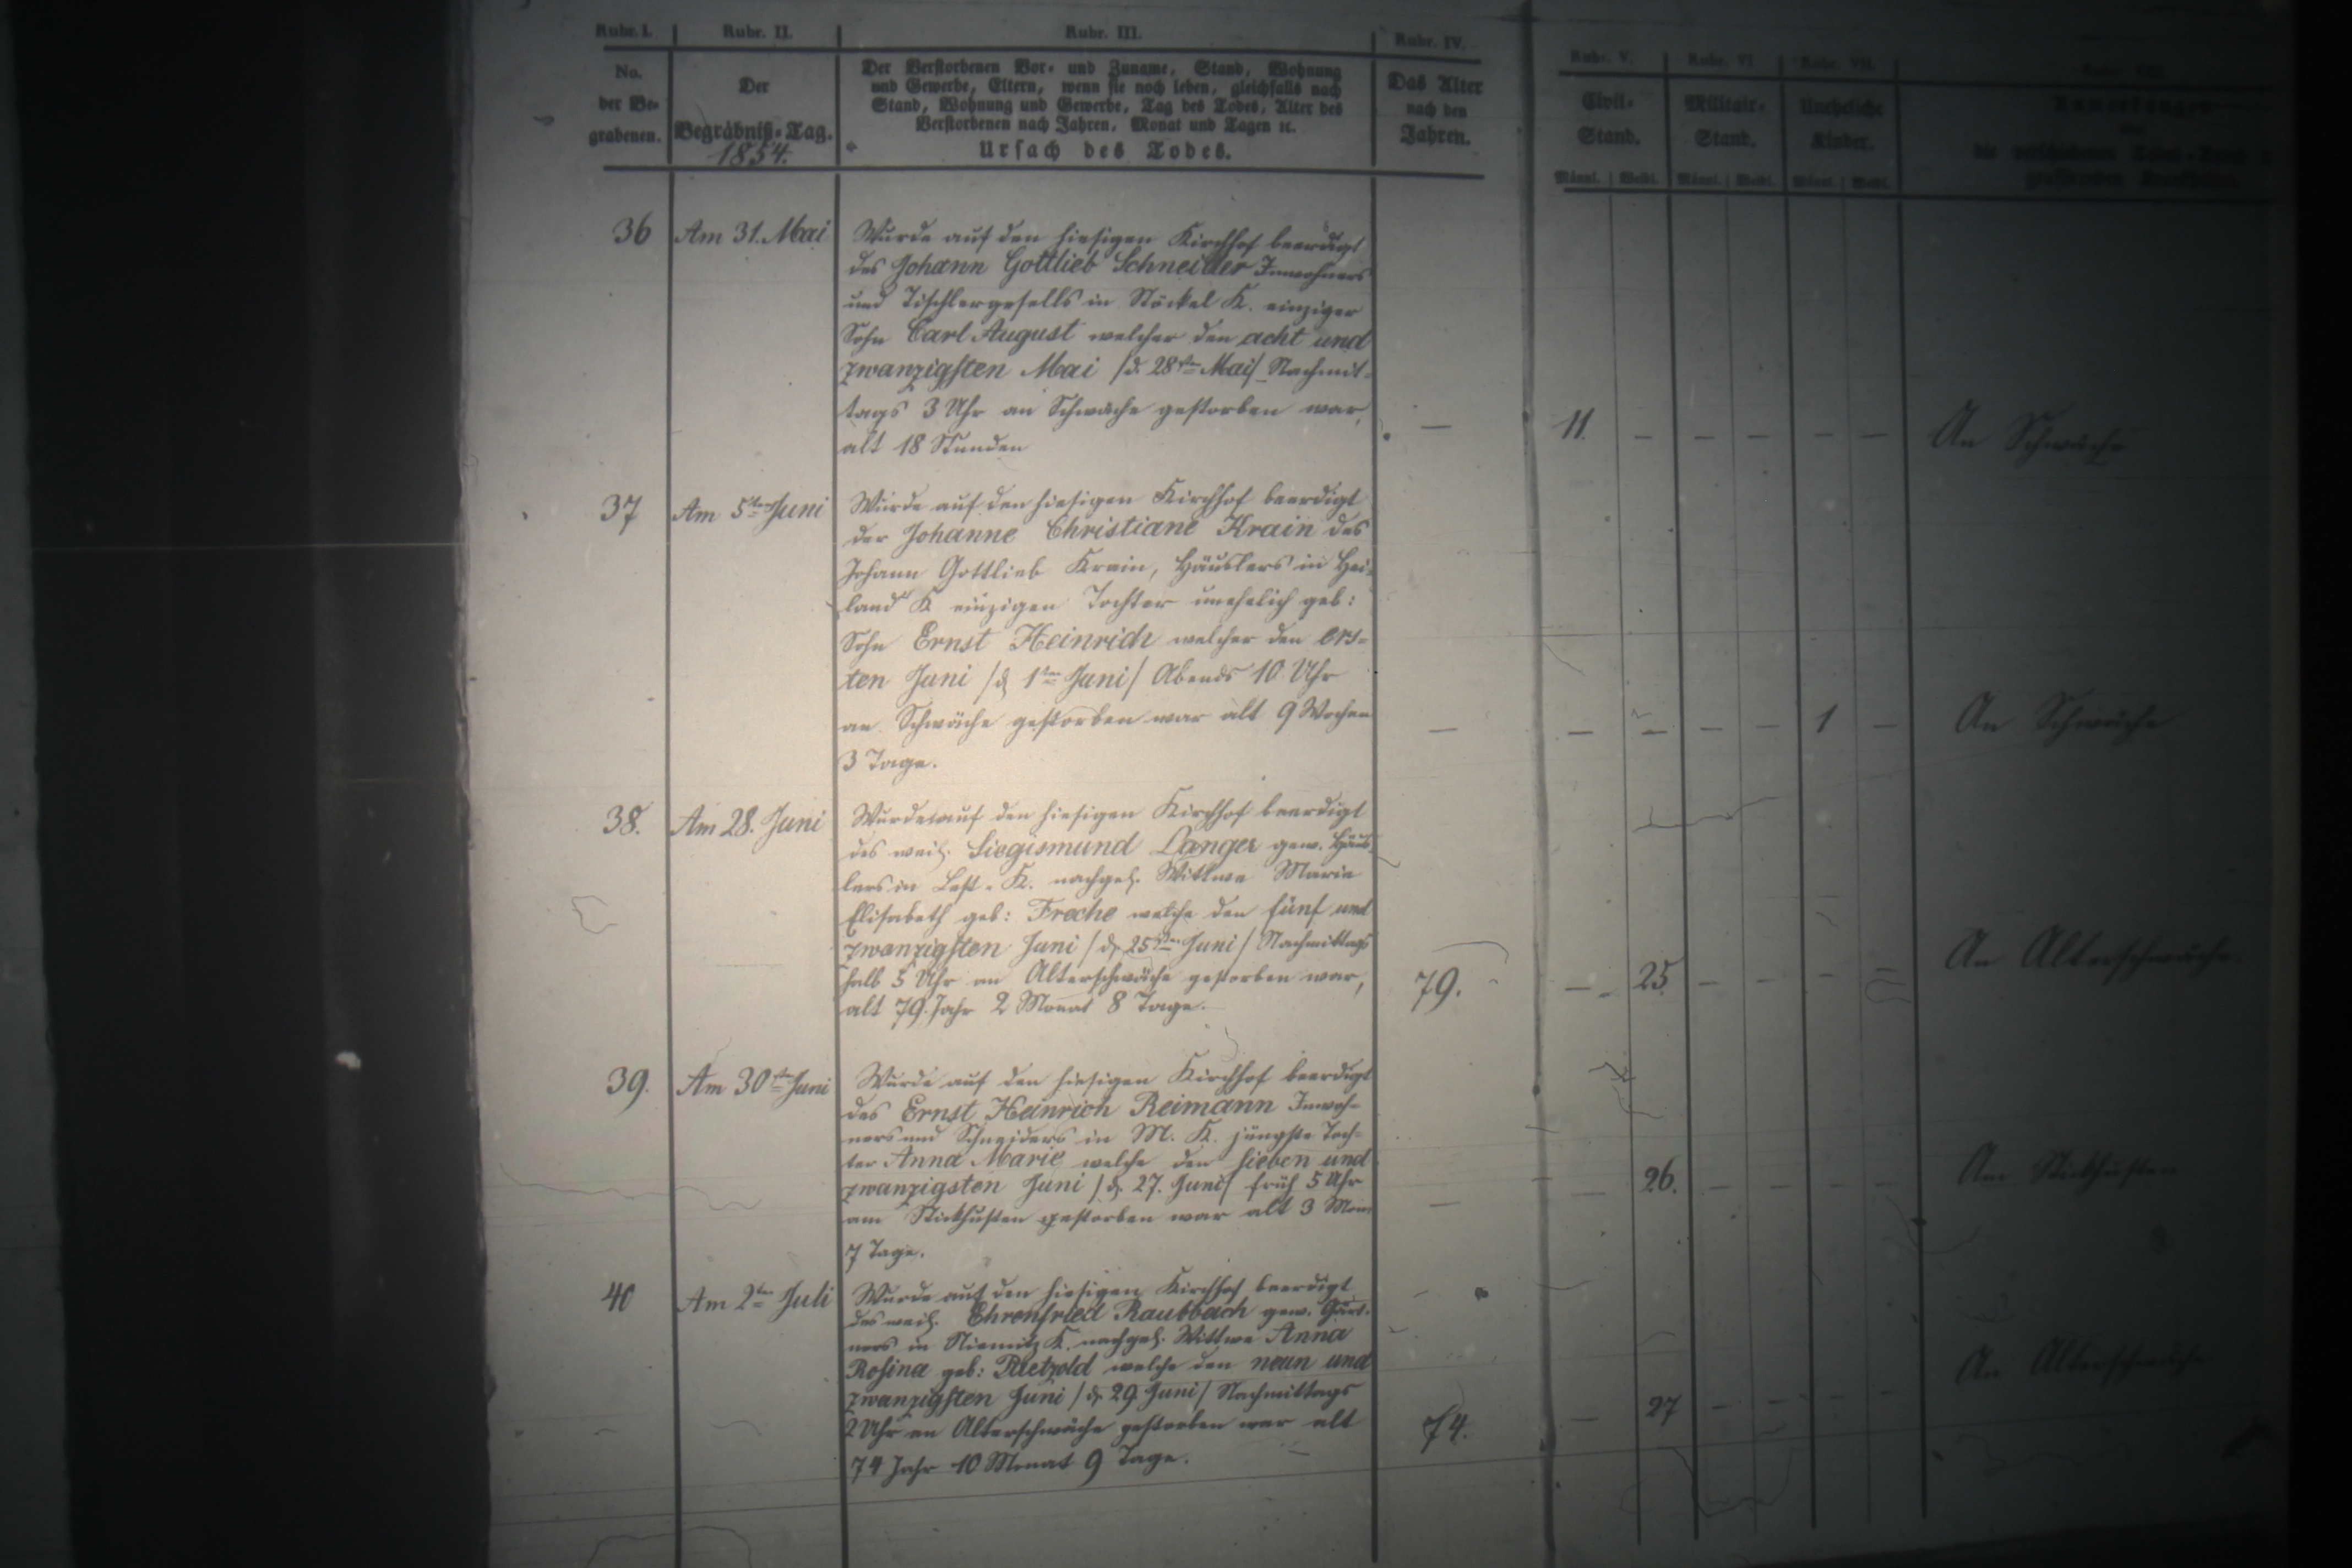 Rubr. I. Rubr. II. Rubr. III. Rubr. IV. Rubr. V. Rubr. VI Rubr. VII.
No.
der Be-
grabenen.
Der
Begräbniß-Tag.
1854.
Der Verstorbenen Vor- und Zuname, Stand, Wohnung
und Gewerbe, Eltern, wenn sie noch leben, gleichfalls nach
Stand, Wohnung und Gewerbe, Tag des Todes, Alter des
Verstorbenen nach Jahren, Monat und Tagen ꝛc.
Ursach des Todes.
Das Alter
nach den
Jahren.
Civil-
Stand.
Männl. Weibl.
Militair-
Stand.
Männl. Weibl.
Uneheliche
Kinder.
Männl. Weibl.
Anmerkungen
36 Am 31. Mai Wurde auf den hiesigen Kirchhof beerdigt
des Johann Gottlieb Schneider Inwohners
und Tischlergesells in Stöckel K. einziger
Sohn Carl August welcher den acht und
zwanzigsten Mai /d. 28sten Mai/ Nachmit-
tags 3 Uhr an Schwäche gestorben war,
alt 18 Stunden
— 11. — — — — — An Schwäche
37 Am 5ten Juni Wurde auf den hiesigen Kirchhof beerdigt
der Johanne Christiane Krain des
Johann Gottlieb Krain, Häuslers in Hei-
land K einzigen Tochter unehelich geb:
Sohn Ernst Heinrich welcher den ers-
ten Juni /d. 1ten Juni/ Abends 10 Uhr
an Schwäche gestorben war alt 9 Wochen
3 Tage.
— — — — — 1 — An Schwäche
38. Am 28. Juni Wurde auf den hiesigen Kirchhof beerdigt
des weil. Siegismund Langer gew. Häus-
lers in Lest-K. nachgel. Wittwe Marie
Elisabeth geb: Freche welche den fünf und
zwanzigsten Juni /d. 25sten Juni/ Nachmittags
halb 5 Uhr an Alterschwäche gestorben war,
alt 79. Jahr 2 Monat 8 Tage.
79. — 25. — — — — An Alterschwäche
39. Am 30sten Juni Wurde auf den hiesigen Kirchhof beerdigt
des Ernst Heinrich Reimann Inwoh-
ners und Schneiders in M. K. jüngste Toch-
ter Anna Marie welche den sieben und
zwanzigsten Juni /d. 27. Juni/ früh 5 Uhr
am Stickhusten gestorben war alt 3 Mon
7 Tage.
— — 26. — — — — Am Stickhusten
40 Am 2ten Juli Wurde auf den hiesigen Kirchhof beerdigt
des weil. Ehrenfried Raubbach gew. Gärt-
ners in Niemitz K. nachgel. Wittwe Anna
Rosina geb: welche den neun und
zwanzigsten Juni /d. 29 Juni/ Nachmittags
2 Uhr an Alterschwäche gestorben war alt
74 Jahr 10 Monat 9 Tage.
74. — 27 — — — — An Alterschwäche